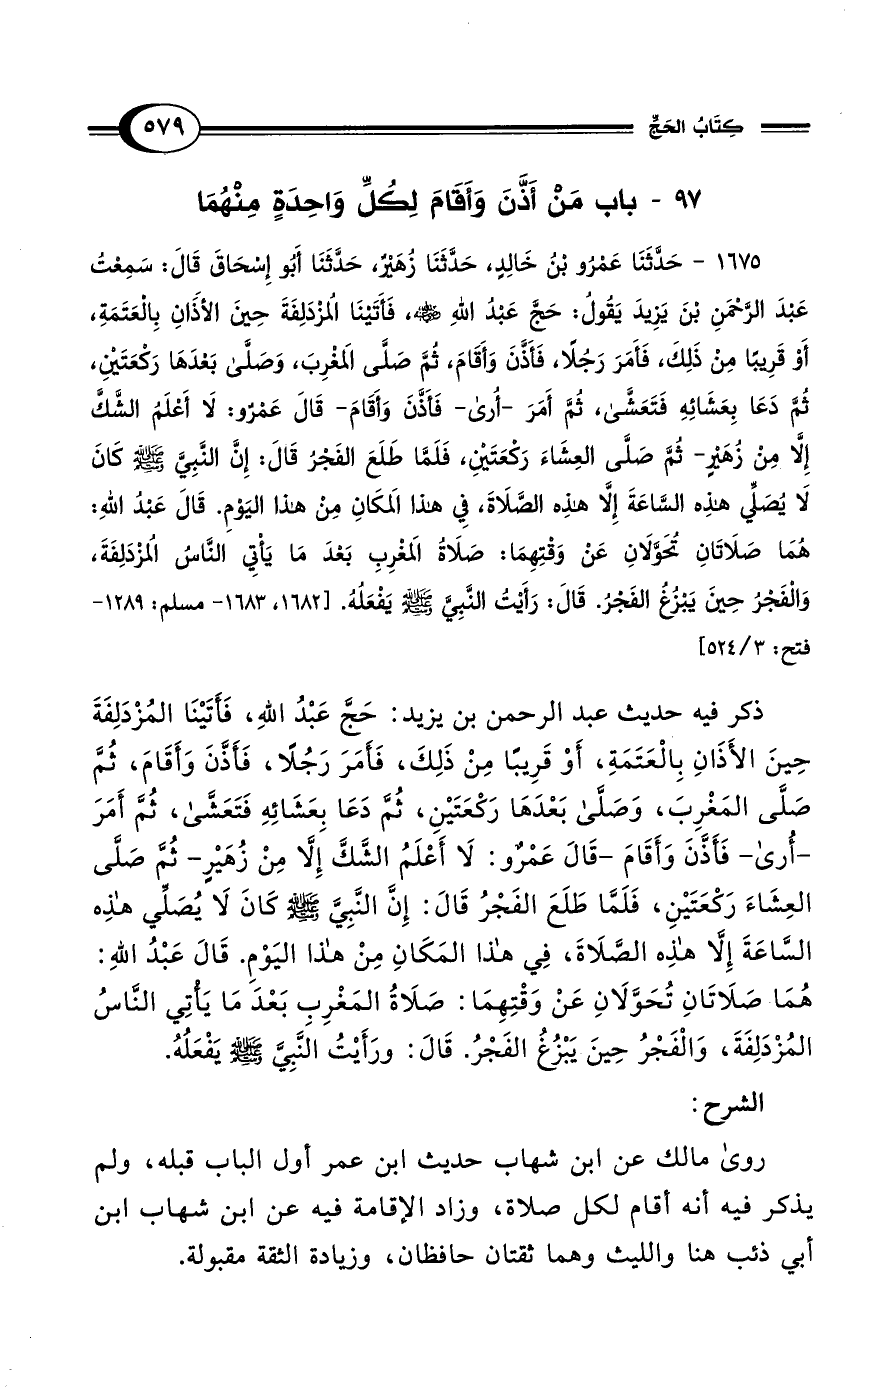 كِتَابُ الحَجِّ
٥٧٩
٩٧ - باب مَنْ أَذَّنَ وَأَقَامَ لِكُلِّ وَاحِدَةٍ مِنْهُمَا
١٦٧٥ - حَدَّثَنَا عَمْرُو بْنُ خَالِدٍ، حَدَّثَنَا زُهَيْرٌ، حَدَّثَنَا أَبُو إِسْحَاقَ قَالَ: سَمِعْتُ
عَبْدَ الرَّحْمَنِ بْنَ يَزِيدَ يَقُولُ: حَجَّ عَبْدُ اللهِ رضي الله عنه، فَأَتَيْنَا الْمُزْدَلِفَةَ حِينَ الأَذَانِ بِالْعَتَمَةِ،
أَوْ قَرِيبًا مِنْ ذَلِكَ، فَأَمَرَ رَجُلًا، فَأَذَّنَ وَأَقَامَ، ثُمَّ صَلَّى الَمغْرِبَ، وَصَلَّىٰ بَعْدَهَا رَكْعَتَيْنِ،
ثُمَّ دَعَا بِعَشَائِهِ فَتَعَشَّىٰ، ثُمَّ أَمَرَ -أُرىٰ- فَأَذَّنَ وَأَقَامَ- قَالَ عَمْرٌو: لَا أَعْلَمُ الشَّكَّ
إِلَّا مِنْ زُهَيْرٍ- ثُمَّ صَلَّى العِشَاءَ رَكْعَتَيْنِ، فَلَمَّا طَلَعَ الفَجْرُ قَالَ: إِنَّ النَّبِيَّ ﷺ كَانَ
لَا يُصَلِّي هذِه السَّاعَةَ إِلَّا هذِه الصَّلَاةَ، فِي هذا الَمكَانِ مِنْ هذا اليَوْمِ. قَالَ عَبْدُ اللهِ:
هُمَا صَلَاتَانِ تُحَوَّلَانِ عَنْ وَقْتِهِمَا: صَلَاةُ الَمغْرِبِ بَعْدَ مَا يَأْتِي النَّاسُ الُمزْدَلِفَةَ،
وَالْفَجْرُ حِينَ يَبْزُغُ الفَجْرُ. قَالَ: رَأَيْتُ النَّبِيَّ ﷺ يَفْعَلُهُ. [١٦٨٢، ١٦٨٣- مسلم: ١٢٨٩-
فتح: ٣/ ٥٢٤]
ذكر فيه حديث عبد الرحمن بن يزيد: حَجَّ عَبْدُ اللهِ، فَأَتَيْنَا المُزْدَلِفَةَ
حِينَ الأَذَانِ بِالْعَتَمَةِ، أَوْ قَرِيبًا مِنْ ذَلِكَ، فَأَمَرَ رَجُلًا، فَأَذَّنَ وَأَقَامَ، ثُمَّ
صَلَّى المَغْرِبَ، وَصَلَّىٰ بَعْدَهَا رَكْعَتَيْنِ، ثُمَّ دَعَا بِعَشَائِهِ فَتَعَشَّىٰ، ثُمَّ أَمَرَ
-أُرىٰ- فَأَذَّنَ وَأَقَامَ -قَالَ عَمْرٌو: لَا أَعْلَمُ الشَّكَّ إِلَّا مِنْ زُهَيْرٍ- ثُمَّ صَلَّى
العِشَاءَ رَكْعَتَيْنِ، فَلَمَّا طَلَعَ الفَجْرُ قَالَ: إِنَّ النَّبِيَّ ﷺ كَانَ لَا يُصَلِّي هٰذِه
السَّاعَةَ إِلَّا هٰذِه الصَّلَاةَ، فِي هٰذا المَكَانِ مِنْ هٰذا اليَوْمِ. قَالَ عَبْدُ اللهِ:
هُمَا صَلَاتَانِ تُحَوَّلَانِ عَنْ وَقْتِهِمَا: صَلَاةُ المَغْرِبِ بَعْدَ مَا يَأْتِي النَّاسُ
المُزْدَلِفَةَ، وَالْفَجْرُ حِينَ يَبْزُغُ الفَجْرُ. قَالَ: ورَأَيْتُ النَّبِيَّ ﷺ يَفْعَلُهُ.
الشرح:
روىٰ مالك عن ابن شهاب حديث ابن عمر أول الباب قبله، ولم
يذكر فيه أنه أقام لكل صلاة، وزاد الإقامة فيه عن ابن شهاب ابن
أبي ذئب هنا والليث وهما ثقتان حافظان، وزيادة الثقة مقبولة.